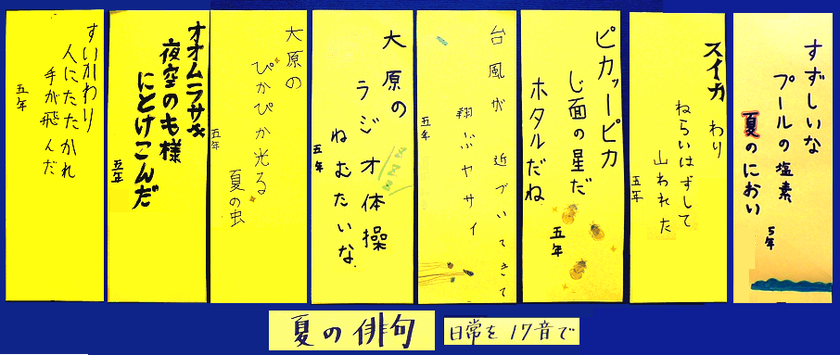 すずしいな
プールの塩素
夏のにおい
5年
スイカ わり
ねらいはずして
山われた
五年
ピカッーピカ
じ面の星だ
ホタルだね
五年
台風が 近づいてきて
翔ぶヤサイ
五年
大原の
ラジオ体操
ZZZ
ねむたいな
五年
大原の
ぴかぴか光る
夏の虫
五年
オオムラサキ
夜空のも様
にとけこんだ
五年
すいかわり
人にたたかれ
手が飛んだ
五年
夏の俳句
日常を17音で